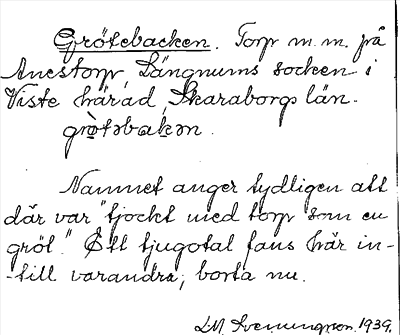 Grötebacken. Torp m.m. på
Anestorp, Längnums socken i
Viste härad, Skaraborgs län.
grö̀təbakən.
Namnet anger tydligen att
där var "tjockt med torp som en
gröt." Ett tjugotal fans här in-
-till varandra, borta nu.
LM Svenungsson. 1939.